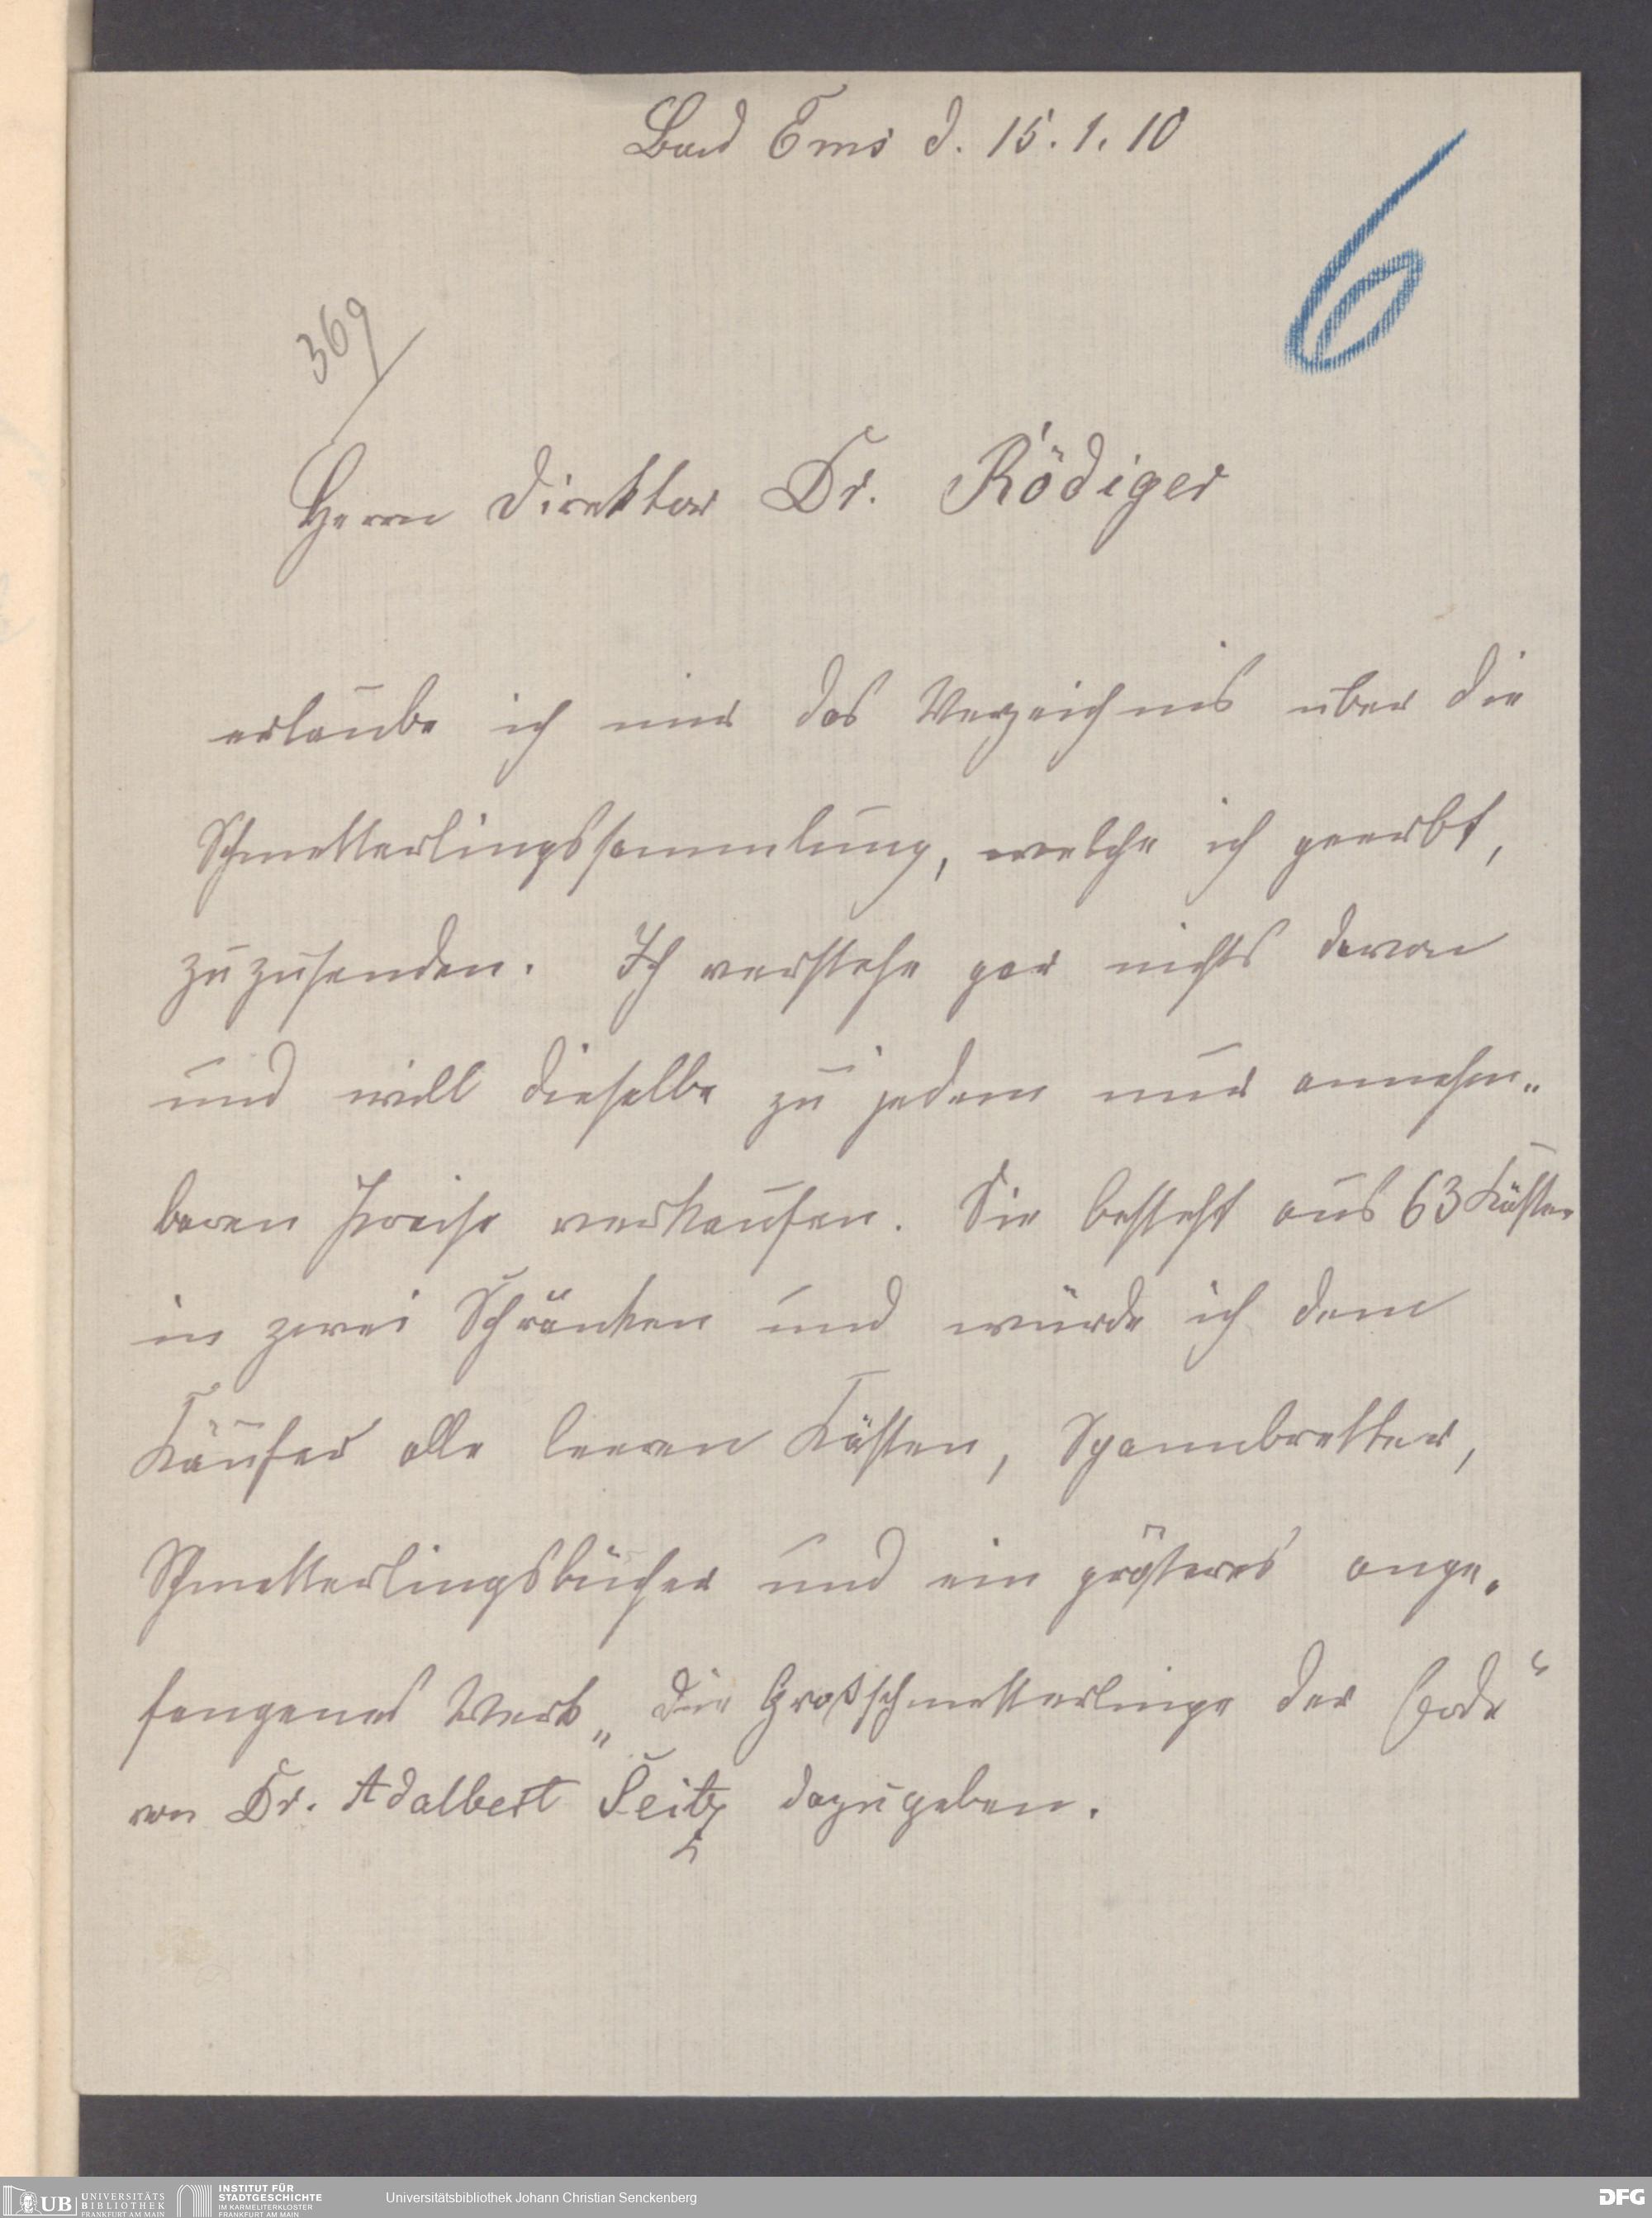 Bad Ems d. 15.1.10
6
369
Herrn Direktor Dr. Rödiger
erlaube ich mir das Verzeichnis über die
Schmetterlingssammlung, welche ich geerbt,
zuzusenden. Ich verstehe gar nichts davon
und will dieselbe zu jedem nur annehm-
baren Preise verkaufen. Sie besteht aus 63 Kästen
in zwei Schränken und würde ich dem
Käufer alle leeren Kästen, Spannbretter,
Schmetterlingsbücher und ein größeres ange-
fangenes Werk „die Großschmetterlinge der Erde“
von Dr. Adalbert Seitz dazugeben.
UB UNIVERSITÄTS
BIBLIOTHEK
FRANKFURT AM MAIN
INSTITUT FÜR
STADTGESCHICHTE
IM KARMELITERKLOSTER
FRANKFURT AM MAIN
Universitätsbibliothek Johann Christian Senckenberg
DFG